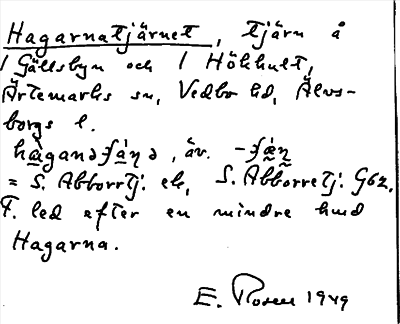 Hagarnatjärnet, tjärn å
1 Gällsbyn och 1 Hökhult,
Ärtemarks sn, Vedbo hd, Älvs-
borgs l.
hàganə ʄä̀ṇə, äv. -ʄä̀ṇ
= S. Abborrtj. ek, S. Abborretj. G62.
F. led efter en mindre hmd
Hagarna.
E. Rosell 1949